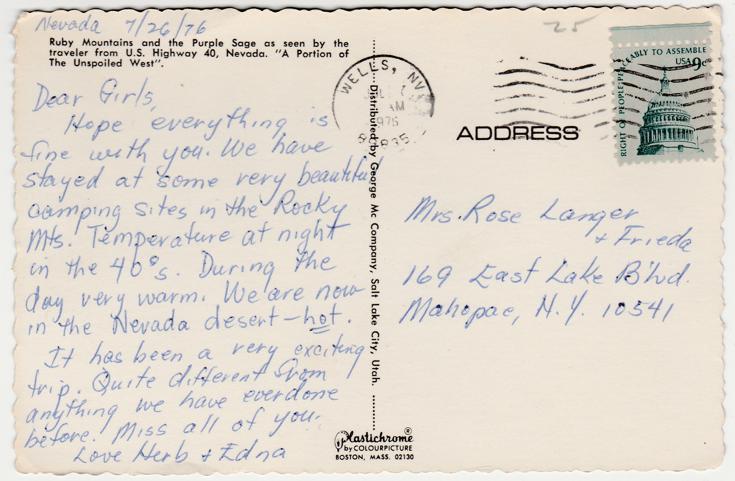 Nevada 7/26/76
Ruby Mountains and the Purple Sage as seen by the
traveler from U.S. Highway 40, Nevada. "A Portion of
The Unspoiled West".
Dear Girls,
Hope everything is
fine with you. We have
stayed at some very beautiful
camping sites in the Rocky
Mts. Temperature at night
in the 40°s. During the
day very warm. We are now
in the Nevada desert—hot.
It has been a very exciting
trip. Quite different from
anything we have ever done
before. Miss all of you.
Love Herb + Edna
Distributed by George Mc Company, Salt Lake City, Utah.
Plastichrome®
by COLOURPICTURE
BOSTON, MASS. 02130
WELLS, NV
AM
1976
25
RIGHT OF PEOPLE PEACEABLY TO ASSEMBLE
USA 9c
ADDRESS
Mrs. Rose Langer
+ Frieda
169 East Lake Blvd.
Mahopac, N.Y. 10541